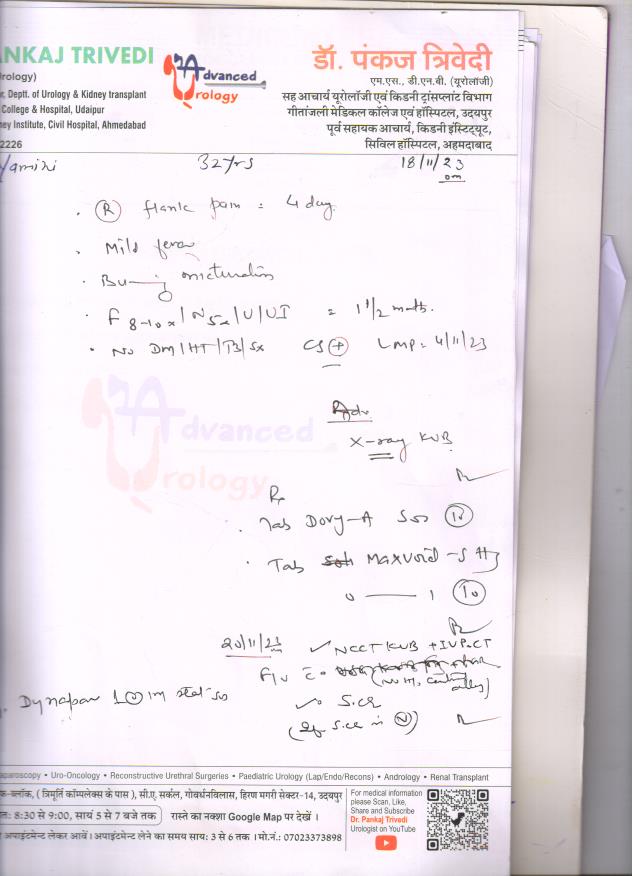 ANKAJ TRIVEDI
rology)
r, Deptt. of Urology & Kidney transplant
College & Hospital, Udaipur
ney Institute, Civil Hospital, Ahmedabad
2226
Advanced
Urology
डॉ. पंकज त्रिवेदी
एम.एस., डी.एन.बी. (यूरोलॉजी)
सह आचार्य यूरोलॉजी एवं किडनी ट्रांसप्लांट विभाग
गीतांजली मेडिकल कॉलेज एवं हॉस्पिटल, उदयपुर
पूर्व सहायक आचार्य, किडनी इंस्टिट्यूट,
सिविल हॉस्पिटल, अहमदाबाद
Yamini 32yrs 18/11/23
. (R) flank pain = 4 day.
. Mild fever
. Burning micturation
. F 8-10x / N 5x / U / UI = 1 1/2 month.
. No DM / HT / TB / Sx CS (+) LMP = 4/11/23
Advanced
Urology
Adv.
X-ray KUB
Rx
. Tab Doxy-A
. Tab Maxvoid-S
0 — 1 (10)
20/11/23 ✓ NCCT KUB + IVP-CT
F/U c̄
✓ S.cr
(If S.cr is (N))
. Dynapar 1 im stat
aparoscopy • Uro-Oncology • Reconstructive Urethral Surgeries • Paediatric Urology (Lap/Endo/Recons) • Andrology • Renal Transplant
क-ब्लॉक, ( त्रिमूर्ति कॉम्पलेक्स के पास ), सी.ए. सर्कल, गोवर्धनविलास, हिरण मगरी सेक्टर-14, उदयपुर
त: 8:30 से 9:00, सायं 5 से 7 बजे तक रास्ते का नक्शा Google Map पर देखें ।
अपाइंटमेन्ट लेकर आवें । अपाइंटमेन्ट लेने का समय साय: 3 से 6 तक । मो.नं.: 07023373898
For medical information
please Scan, Like,
Share and Subscribe
Dr. Pankaj Trivedi
Urologist on YouTube